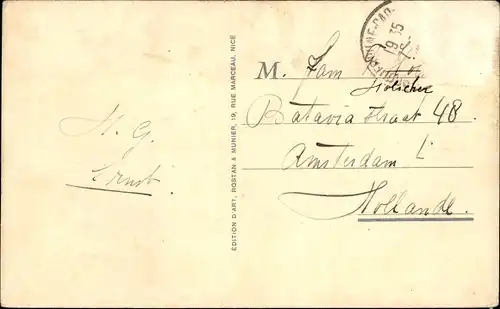 H. G.
Ernst.
ÉDITION D'ART, ROSTAN & MUNIER, 19, RUE MARCEAU, NICE
M. Fam
Holscher
Batavia straat 48
Amsterdam
Hollande.